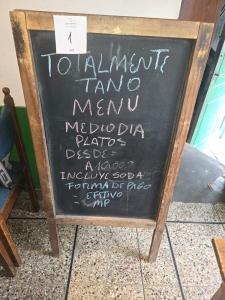 1
TOTALMENTE
TANO
MENU
MEDIODIA
PLATOS
DESDE
A
INCLUYE SODA
FORMA DE PAGO
- EFITIVO
- MP